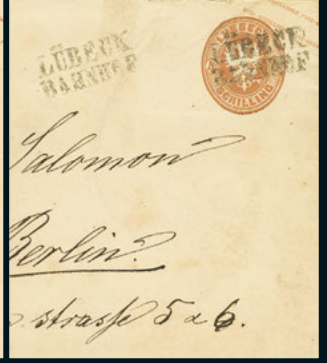 LÜBECK
BAHNHOF
LÜBECK
BAHNHOF
SCHILLING
Salomon
Berlin.
strasse 5 a 6.